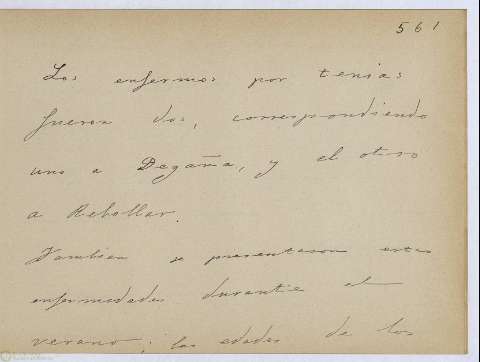 561
Los enfermos por tenias
fueron dos, correspondiendo
uno a Degaña, y el otro
a Rebollar.
Tambien se presentaron estas
enfermedades durante el
verano; las edades de los